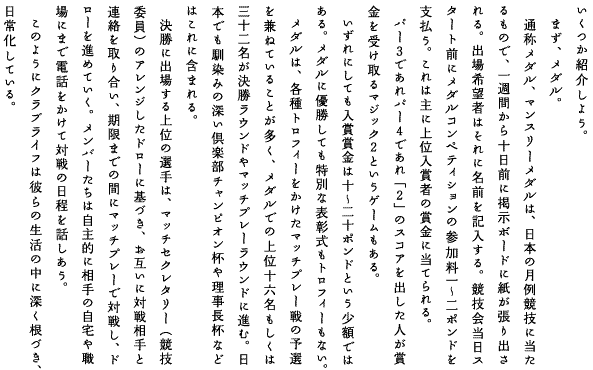 いくつか紹介しよう。
まず、メダル。
通称メダル、マンスリーメダルは、日本の月例競技に当た
るもので、一週間から十日前に掲示ボードに紙が張り出さ
れる。出場希望者はそれに名前を記入する。競技会当日ス
タート前にメダルコンペティションの参加料一〜二ポンドを
支払う。これは主に上位入賞者の賞金に当てられる。
パー3であれパー4であれ「2」のスコアを出した人が賞
金を受け取るマジック2というゲームもある。
いずれにしても入賞賞金は十〜二十ポンドという少額では
ある。メダルに優勝しても特別な表彰式もトロフィーもない。
メダルは、各種トロフィーをかけたマッチプレー戦の予選
を兼ねていることが多く、メダルでの上位十六名もしくは
三十二名が決勝ラウンドやマッチプレーラウンドに進む。日
本でも馴染みの深い倶楽部チャンピオン杯や理事長杯など
はこれに含まれる。
決勝に出場する上位の選手は、マッチセクレタリー（競技
委員）のアレンジしたドローに基づき、お互いに対戦相手と
連絡を取り合い、期限までの間にマッチプレーで対戦し、ド
ローを進めていく。メンバーたちは自主的に相手の自宅や職
場にまで電話をかけて対戦の日程を話しあう。
このようにクラブライフは彼らの生活の中に深く根づき、
日常化している。